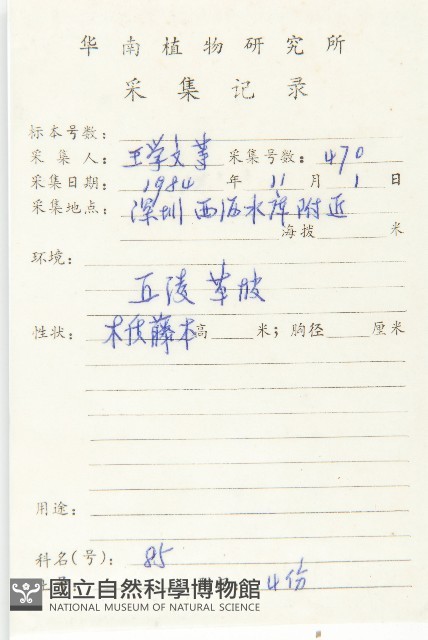 华南植物研究所
采集记录
标本号数：
采集人：王学文等 采集号数：470
采集日期：1984 年 11 月 1 日
采集地点：深圳 西沥水库附近
海拔 米
环境：
丘陵草坡
性状：木质藤本 高 米；胸径 厘米
用途：
科名(号)：85
4份
國立自然科學博物館
NATIONAL MUSEUM OF NATURAL SCIENCE